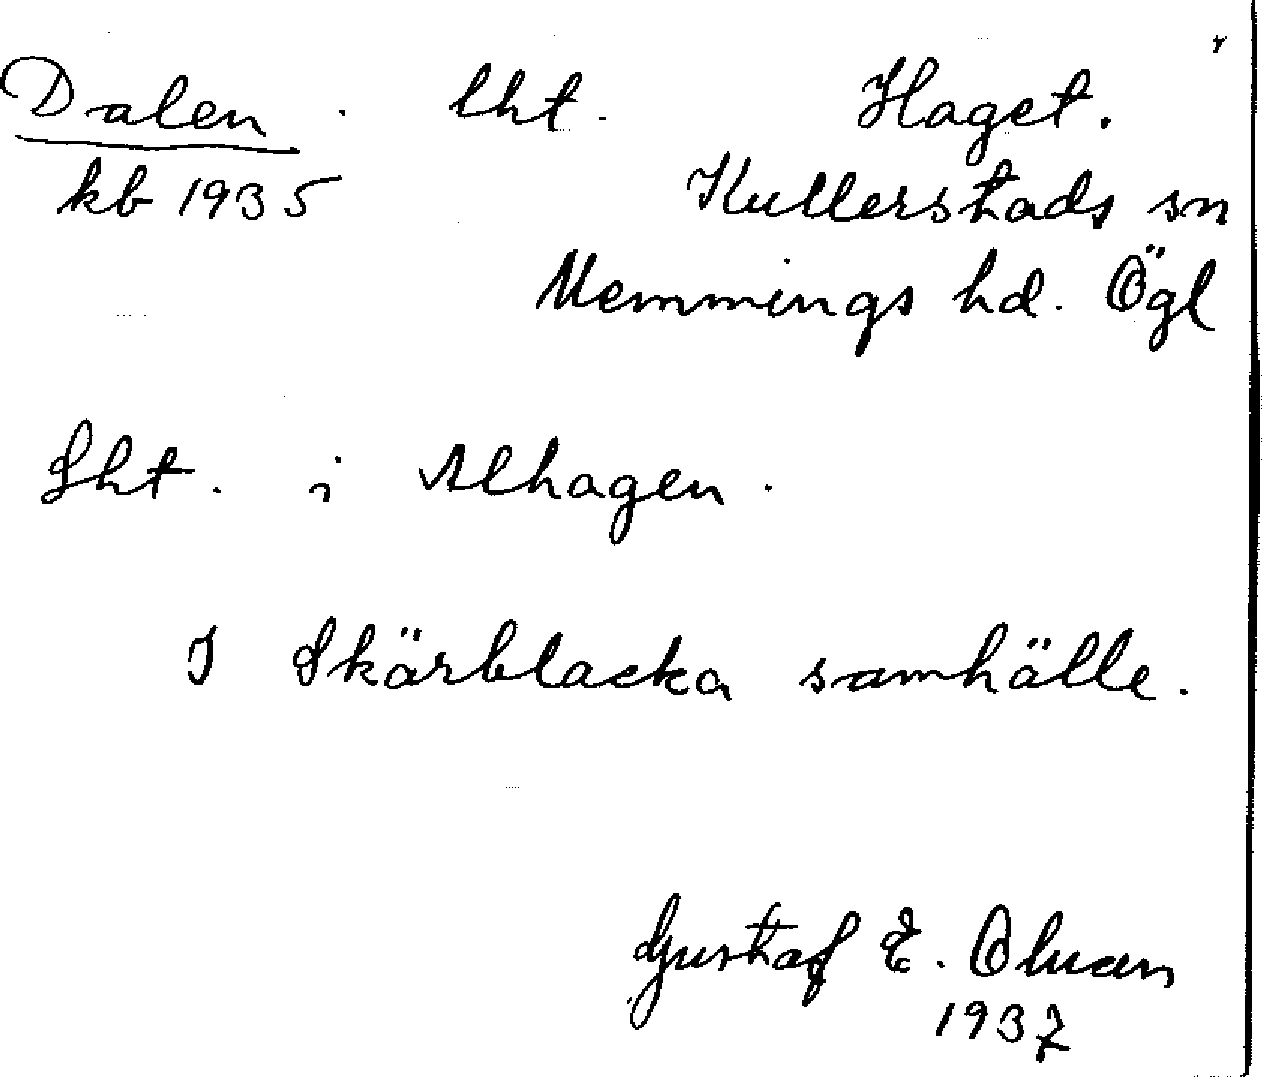 Dalen. lht. Haget.
kb 1935 Kullerstads sn
Memmings hd. Ögl
Lht. i Alhagen.
I Skärblacka samhälle.
Gustaf E.
1937